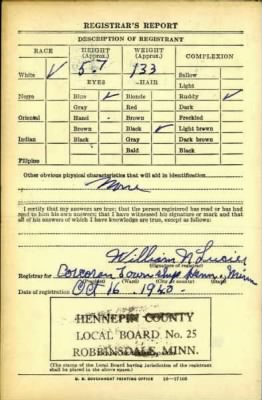 REGISTRAR'S REPORT
DESCRIPTION OF REGISTRANT
RACE HEIGHT (Approx.) WEIGHT (Approx.) COMPLEXION
White ✓ 5-7 133 Sallow
EYES HAIR Light
Negro Blue ✓ Blonde Ruddy ✓
Gray Red Dark
Oriental Hazel Brown Freckled
Brown Black ✓ Light brown
Indian Black Gray Dark brown
Bald Black
Filipino
Other obvious physical characteristics that will aid in identification
None
I certify that my answers are true; that the person registered has read or has had
read to him his own answers; that I have witnessed his signature or mark and that
all of his answers of which I have knowledge are true, except as follows:
William N
(Signature of registrar)
Registrar for Corcoran Township Henn. Minn
(Precinct) (Ward) (City or county) (State)
Date of registration Oct 16 1940
HENNEPIN COUNTY
LOCAL BOARD No. 25
ROBBINSDALE, MINN.
(The stamp of the Local Board having jurisdiction of the registrant shall
be placed in the above space.)
U. S. GOVERNMENT PRINTING OFFICE 16-17105